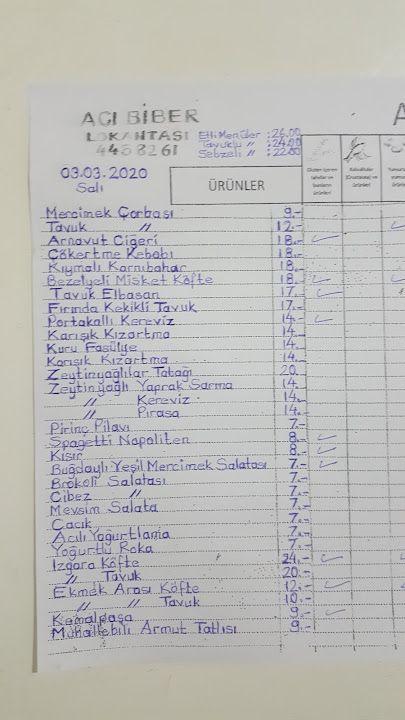 ACI BİBER
LOKANTASI
4458261
Etli Menüler : 26.00
Tavuklu " : 24.00
Sebzeli " : 22.00
03.03.2020
Salı
ÜRÜNLER
Gluten içeren tahıllar ve bunların ürünleri
Kabuklular (Crustacea) ve ürünleri
Mercimek Çorbası 9.-
Tavuk " 12.-
Arnavut Ciğeri 18.-
Çökertme Kebabı 18.-
Kıymalı Karnıbahar 18.-
Bezelyeli Misket Köfte 18.-
Tavuk Elbasan 17.-
Fırında Kekikli Tavuk 17.-
Portakallı Kereviz 14.-
Karışık Kızartma 14.-
Kuru Fasülye 14.-
Karışık Kızartma 14.-
Zeytinyağlılar Tabağı 20.-
Zeytinyağlı Yaprak Sarma 14.-
" Kereviz 14.-
" Pırasa 14.-
Pirinç Pilavı 7.-
Spagetti Napoliten 8.-
Kısır 8.-
Buğdaylı Yeşil Mercimek Salatası 7.-
Brokoli Salatası 7.-
Cibez " 7.-
Mevsim Salata 7.-
Cacık 7.-
Acılı Yoğurtlama 7.-
Yoğurtlu Roka 7.-
Izgara Köfte 24.-
" Tavuk 20.-
Ekmek Arası Köfte 12.-
" " Tavuk 10.-
Kemalpaşa 9.-
Muhallebili Armut Tatlısı 9.-